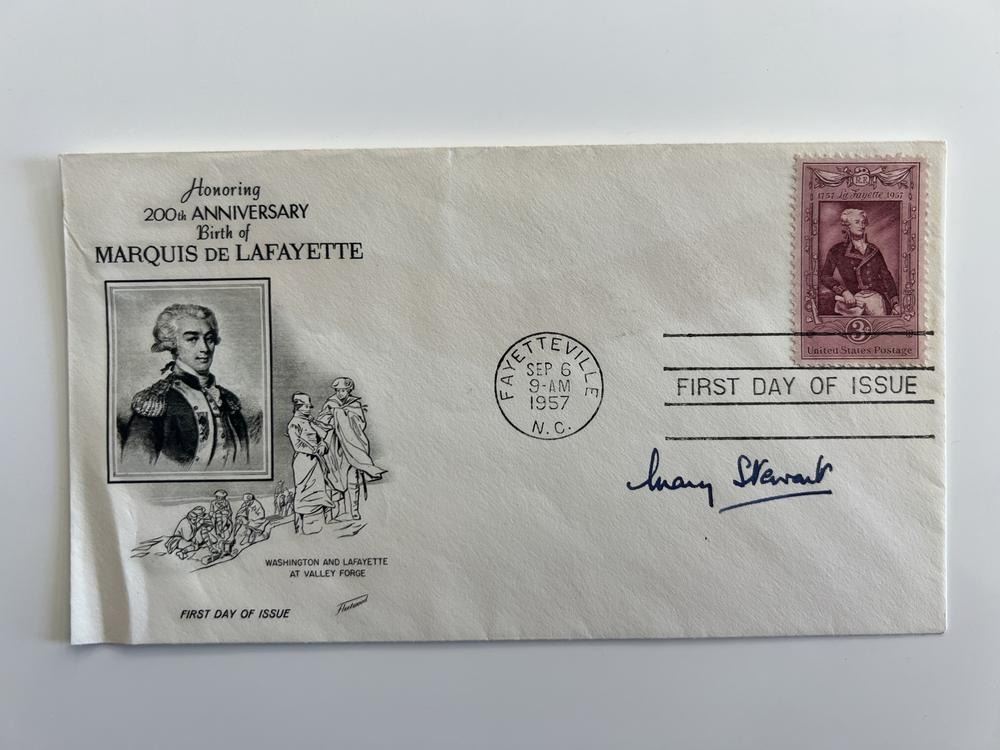 Honoring
200th ANNIVERSARY
Birth of
MARQUIS DE LAFAYETTE
WASHINGTON AND LAFAYETTE
AT VALLEY FORGE
FIRST DAY OF ISSUE
Fleetwood
FAYETTEVILLE
SEP 6
9-AM
1957
N.C.
RF
1757 La Fayette 1957
3¢
United States Postage
FIRST DAY OF ISSUE
Mary Stewart